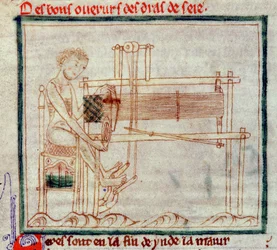 Des bons ouururs des dras de seie.
eres sont en la fin de ynde la maiur